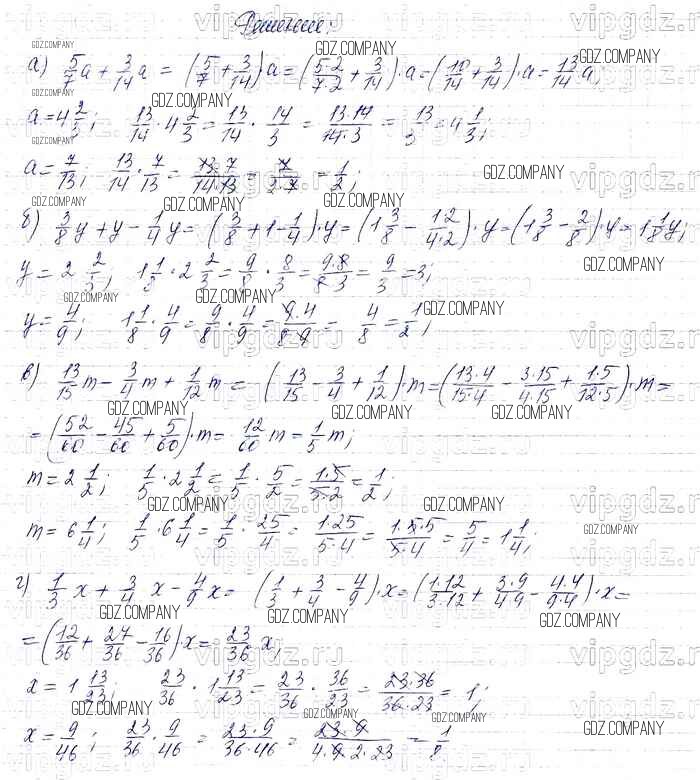 Решение:
а) 5/7 a + 3/14 a = (5/7 + 3/14) a = (5·2/7·2 + 3/14) · a = (10/14 + 3/14) · a = 13/14 a,
a = 4 2/3; 13/14 · 4 2/3 = 13/14 · 14/3 = 13·14/14·3 = 13/3 = 4 1/3;
a = 7/13; 13/14 · 7/13 = 13·7/14·13 = 7/2·7 = 1/2;
б) 3/8 y + y - 1/4 y = (3/8 + 1 - 1/4) · y = (1 3/8 - 1·2/4·2) · y = (1 3/8 - 2/8) · y = 1 1/8 y;
y = 2 2/3; 1 1/8 · 2 2/3 = 9/8 · 8/3 = 9·8/8·3 = 9/3 = 3;
y = 4/9; 1 1/8 · 4/9 = 9/8 · 4/9 = 9·4/8·9 = 4/8 = 1/2;
в) 13/15 m - 3/4 m + 1/12 m = (13/15 - 3/4 + 1/12) · m = (13·4/15·4 - 3·15/4·15 + 1·5/12·5) · m =
= (52/60 - 45/60 + 5/60) · m = 12/60 m = 1/5 m;
m = 2 1/2; 1/5 · 2 1/2 = 1/5 · 5/2 = 1·5/5·2 = 1/2;
m = 6 1/4; 1/5 · 6 1/4 = 1/5 · 25/4 = 1·25/5·4 = 1·5·5/5·4 = 5/4 = 1 1/4;
г) 1/3 x + 3/4 x - 4/9 x = (1/3 + 3/4 - 4/9) · x = (1·12/3·12 + 3·9/4·9 - 4·4/9·4) · x =
= (12/36 + 27/36 - 16/36) · x = 23/36 x,
x = 1 13/23; 23/36 · 1 13/23 = 23/36 · 36/23 = 23·36/36·23 = 1;
x = 9/46; 23/36 · 9/46 = 23·9/36·46 = 23·9/4·9·2·23 = 1/8
GDZ.COMPANY
vipgdz.ru